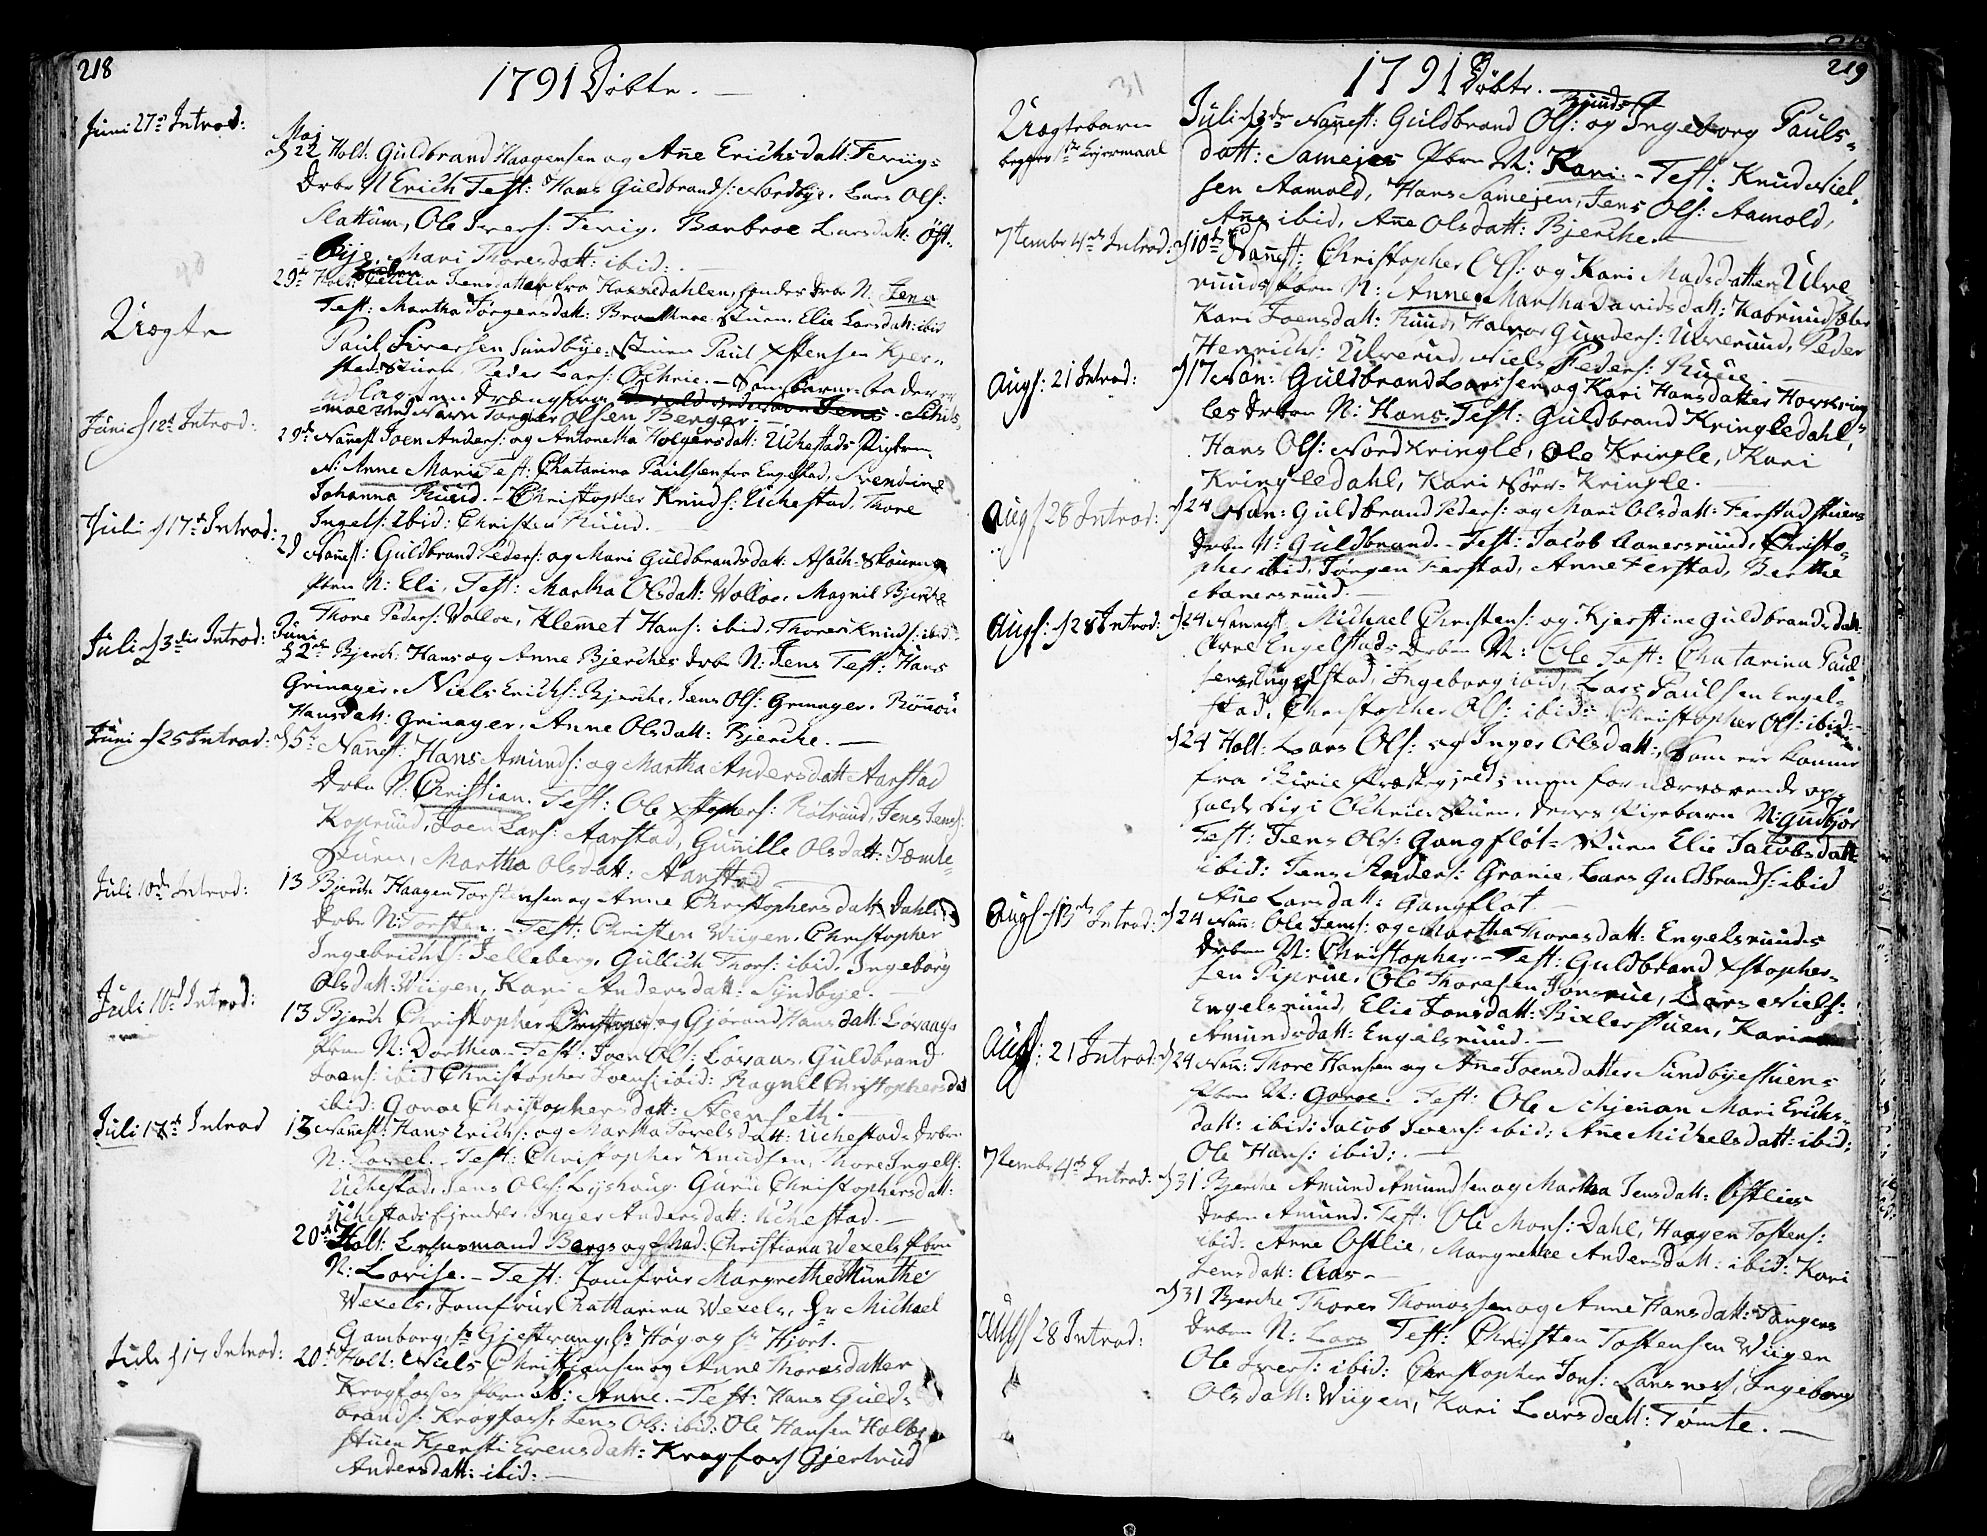 218
1791 Döbte. —
Juni 27de Introd:
Maj
22 Holt: Guldbrand Haagensen og Añe Erichsdatt: Feriig-
Drbn N Erich Test: Hans Guldbrands: Nordbÿe. Lars Ols:
Slattum, Ole Ivers: Ferig. Barbroe Larsdatt: Öst-
bÿe, Mari Thoresdatt: ibid: —
29de Holt: Cicilia Jensdatter fra Hassedahlen, hendes Drbn N. Jens
Uægte
Test: Martha Jörgensdatt: Braathnes Stuen. Elie Larsdatt: ibid
Paul Siversen Sundbÿe-Stuen Paul Xstensen Kjer-
stad Stuen, Peder Lars: Ochrie. — Som barne fader er
udlagt en Dræng fra Schids-
moe ved Navn Torger Olsen Berger. —
Juni 12te Introd:
29de Nañest Joen Anders: og Antonetha Holgersdatt: Uchestads Pigebn
N: Anne Marie Test: Chatarina Paulsen fra Engelstad, Svendine
Johanna Ruud. — Christopher Knuds: Uchestad, Thore
Ingels: Ibid: Christen Ruud.
Juli 17de Introd:
29 Nañest: Guldbrand Peders: og Mari Guldbrandsdatt: Asach-Stouen
Pbrn N: Eli, Test: Martha Olsdatt: Wolloe, Magnil Bjerche
Thore Peders: Volloe, Klemet Hans: ibid, Thores Knuds: ibid
Juli 3die Introd:
Juni
2den Bjerch: Hans og Anne Bjerches Drbn N: Jens Test: Hans
Grinager. Niels Erichs: Bjerche, Jens Ols: Grinager. Rönnou
Hansdatt: Grinager, Anne Olsdatt: Bjerche. —
Juni 25 Introd:
5te Nañest: Hans Amunds: og Martha Andersdatt Aarstad
Drbn N: Christian. Test: Ole Xstophers: Rotruud, Jens Jens:
Kopruud, Joen Lars: Aarstad, Guñille Olsdatt: Tæmte-
Stuen, Martha Olsdatt: Aarstad
Juli 10de Introd:
13 Bjerch Haagen Torstensen og Anne Christophersdatt Dahls
Drbn N: Torsten. — Test: Christen Wiigen. Christopher
Ingebricht: Jelleberg. Gullich Thors: ibid. Ingeborg
Olsdatt: Wiigen, Kari Andersdatt: Sÿndbye. —
Juli 10de Introd:
13 Bjerch Christopher Christophers: og Gjorand Hansdatt: Lövaas-
Pbrn N: Dorthea. Test: Joen Ols: Lövaas. Guldbrand
Joens: ibid Christopher Joens: ibid: Ragnil Christophersdat
ibid: Goroe Christophersdatt: Steenseth. —
Juli 17de Introd
13 Nañest: Hans Erichs: og Martha Povelsdatt: Uchestads Drbn
N: Povel. Test: Christopher Knudsen, Thore Ingels:
Uchestad, Jens Ols: Lÿshoug. Guru Christophersdatt:
Uchestads Eiendeel. Inger Andersdatt: Uchestad. —
20de Holt: Lehnsmand Bergs og Mad: Christiana Wexels Pbrn
N: Lovise. — Test: Jomfrue Margrethe Munthe
Wexels, Jomfrue Chatharina Wexels, Hr Michael
Gamborg, Hr Gjestvang, Hr Høg og Hr Hjort. —
Juli 17 Introd:
20de Holt: Niels Christiansen og Anne Thoresdatter
Krogfosses Pbrn N: Anne. — Test: Hans Guld-
brands: Krogfoss, Jens Ols: ibid: Ole Hansen Holbe
Stuen Kjersti Evensdatt: Krogfoss Gjertrud
Andersdatt: ibid: —
31
219
1791 Döbte. —
Uægtebarn
begges 1ste Lejermaal
Ruuds
Juli 3de Nañest: Guldbrand Ols: og Ingeborg Pauls-
datt: Samejes Pbrn N: Kari. — Test: Knud Niel-
sen Aamold, Hans Samejen, Jens Ols: Aamold,
Añe ibid, Añe Olsdatt: Bjerche. —
7tembr 4de Introd:
10de Nañest: Christopher Ols: og Kari Madsdatter Ulve-
ruuds Pbrn N: Anne. Martha Davidsdatt: Kabruudsæter
Kari Joensdatt: Ruud, Halvor Gunders: Ulveruud, Peder
Henrichs: Ulverud, Niels Peders: Ruud. —
Augs: 21 Introd:
17 Nañ: Guldbrand Larssen og Kari Hansdatter Norkring-
les Drbn N: Hans. Test: Guldbrand Kringledahl,
Hans Ols: Nordkringle, Ole Kringle, Kari
Kringledahl, Kari Sörr-Kringle.
Augs 28 Introd:
24 Nañ: Guldbrand Peders: og Mari Olsdatt: Ferstadstuens
Drbn N: Guldbrand. — Test: Jacob Aanersruud, Christo-
pher ibid, Jörgen Ferstad, Anne Ferstad, Berthe
Aanersruud. —
Augs: 28 Introd:
24 Nannest, Michael Christens: og Kjerstine Guldbrandsdatt:
Øvre Engelstads Drbn N: Ole Test: Chatarina Paul-
sen Engelstad, Ingeborg ibid, Lars Paulsen Engel-
stad, Christopher Ols: ibid: Christopher Ols: ibid —
24 Holt: Lars Ols: og Inger Olsdatt:, som er komne
fra Birie Præstegield; men for nærværende op-
holde sig i Ochrie Stuen. deres Pigebarn N: Gudbjör
Test: Jens Ols: Gangflöt-Stuen Elie Jacobsdatt:
ibid: Jens Anders: Granie, Lars Guldbrands: ibid
Añe Larsdatt: Gangflöt —
Augs 13de Introd:
24 Nañ: Ole Jens: og Martha Thoresdatt: Engelsruuds
Drbn N: Christopher. — Test: Guldbrand Xstopher-
sen Piprue, Ole Thoresen Jonsrue, Lars Niels:
Engelsruud, Elie Jonsdatt: Bixlerstuen, Kari
Amundsdatt: Engelsruud. —
Augs: 21 Introd:
24 Nañ: Thore Hansen og Añe Joensdatter Sundbÿestuens
Pbrn N: Goroe. Test: Ole Schjenan Mari Erichs-
datt: ibid: Jacob Joens: ibid: Añe Michelsdatt: ibid:
Ole Hans: ibid: —
7tembr 4de Introd:
31 Bjerche Amund Amundsen og Martha Jensdatt: Østlies
Drbn Amund. Test: Ole Mons: Dahl, Haagen Tostens:
ibid: Anne Østlie, Margrethe Andersdatt: ibid: Kari
Jensdatt: Aas —
Augs 28 Introd:
31 Bjerche Thores Thomassen og Anne Hansdatt: Tangens
Drbn N: Lars Test: Christen Tostensen Wiigen
Ole Ivers: ibid: Christopher Jons: Larsnes, Ingeborg
Olsdatt: Wiigen, Kari Larsdatt: Tömte. —